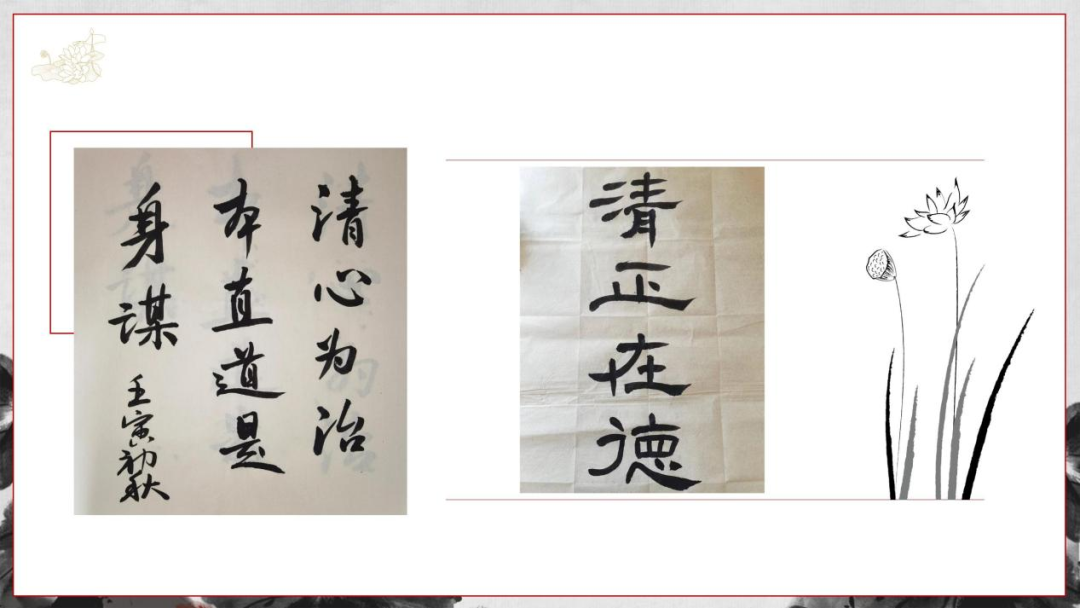 清心为治
本直道是
身谋
壬寅初秋
清正在德